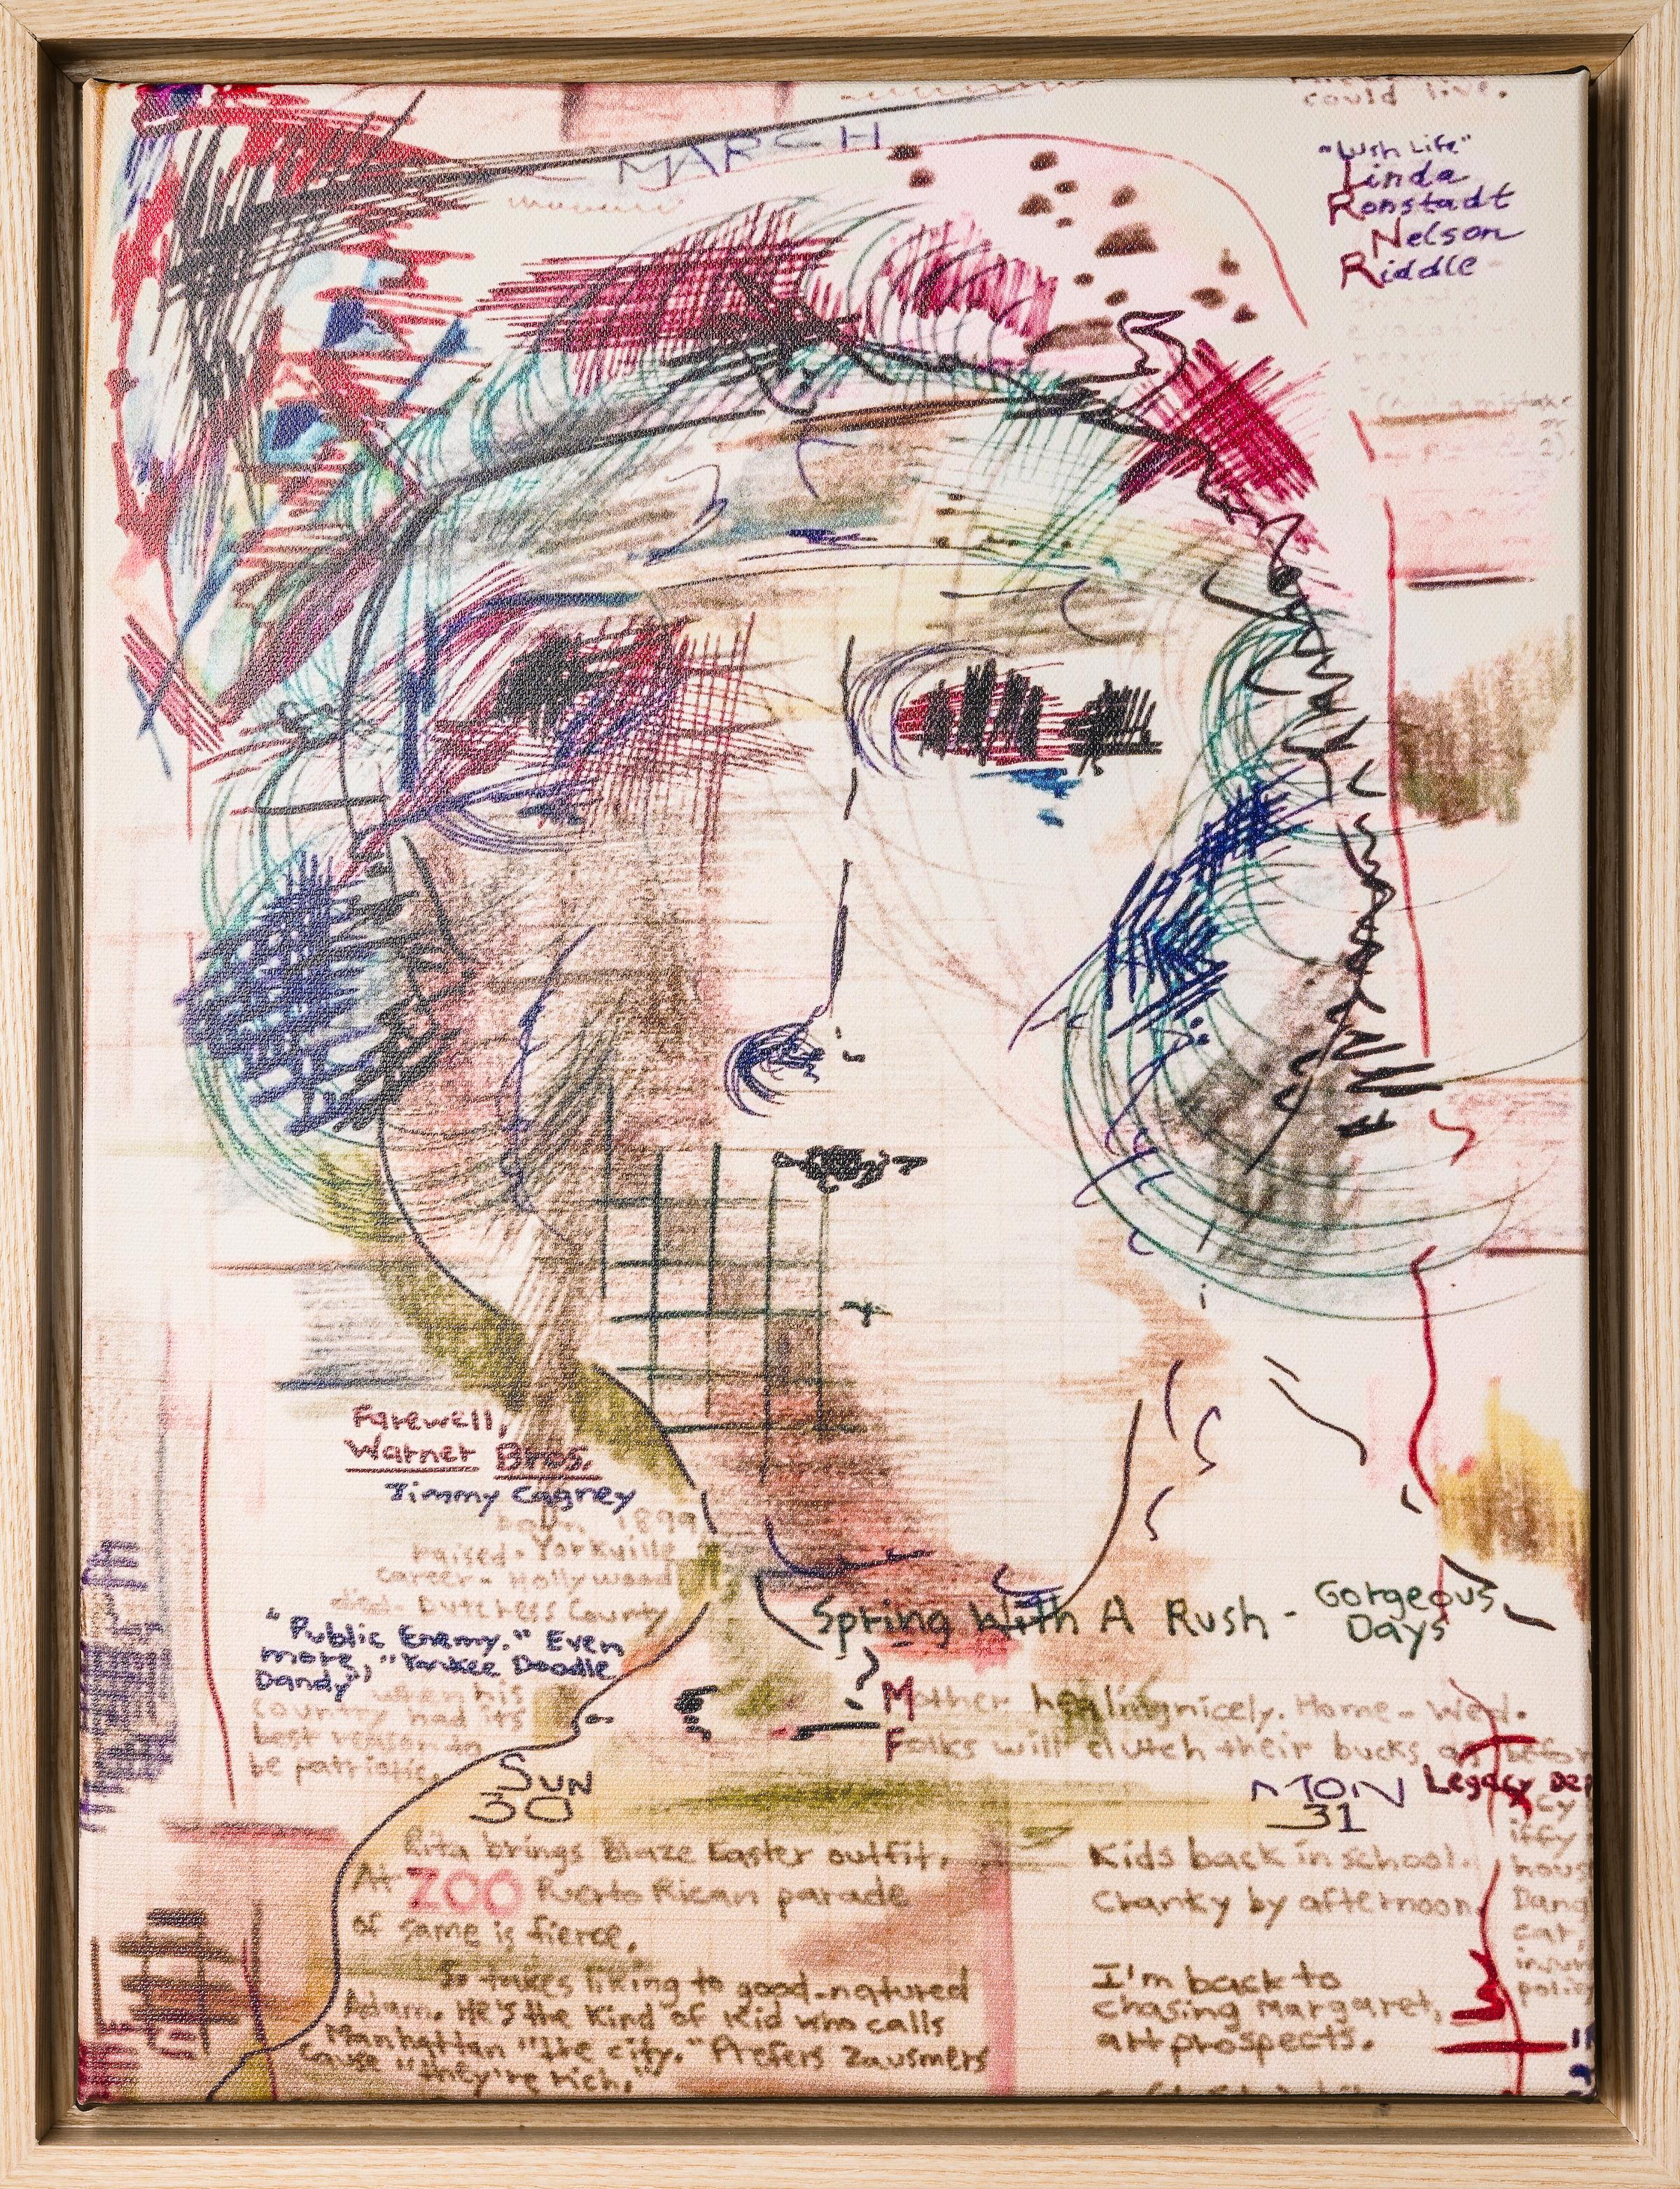 could live.
MARCH
"Lush Life"
Linda
Ronstadt
Nelson
Riddle
a mistake
or
2).
Farewell,
Warner Bros.
Jimmy Cagney
born 1899
raised - Yorkville
career - Hollywood
died - Dutchess County
"Public Enemy." Even
more, "Yankee Doodle
Dandy" when his
country had its
best reason to
be patriotic.
Spring With A Rush - Gorgeous
Days
Mother healing nicely. Home - Wed.
Folks will clutch their bucks as befor
Legacy
SUN
30
MON
31
Rita brings Blaze Easter outfit.
At ZOO Puerto Rican parade
of same is fierce.
takes liking to good-natured
Adam. He's the kind of kid who calls
Manhattan "the city." Prefers Zausmers
cause "they're rich."
Kids back in school.
Cranky by afternoon.
I'm back to
chasing Margaret,
art prospects.
iffy
hous
Dang
cat,
insur
polic